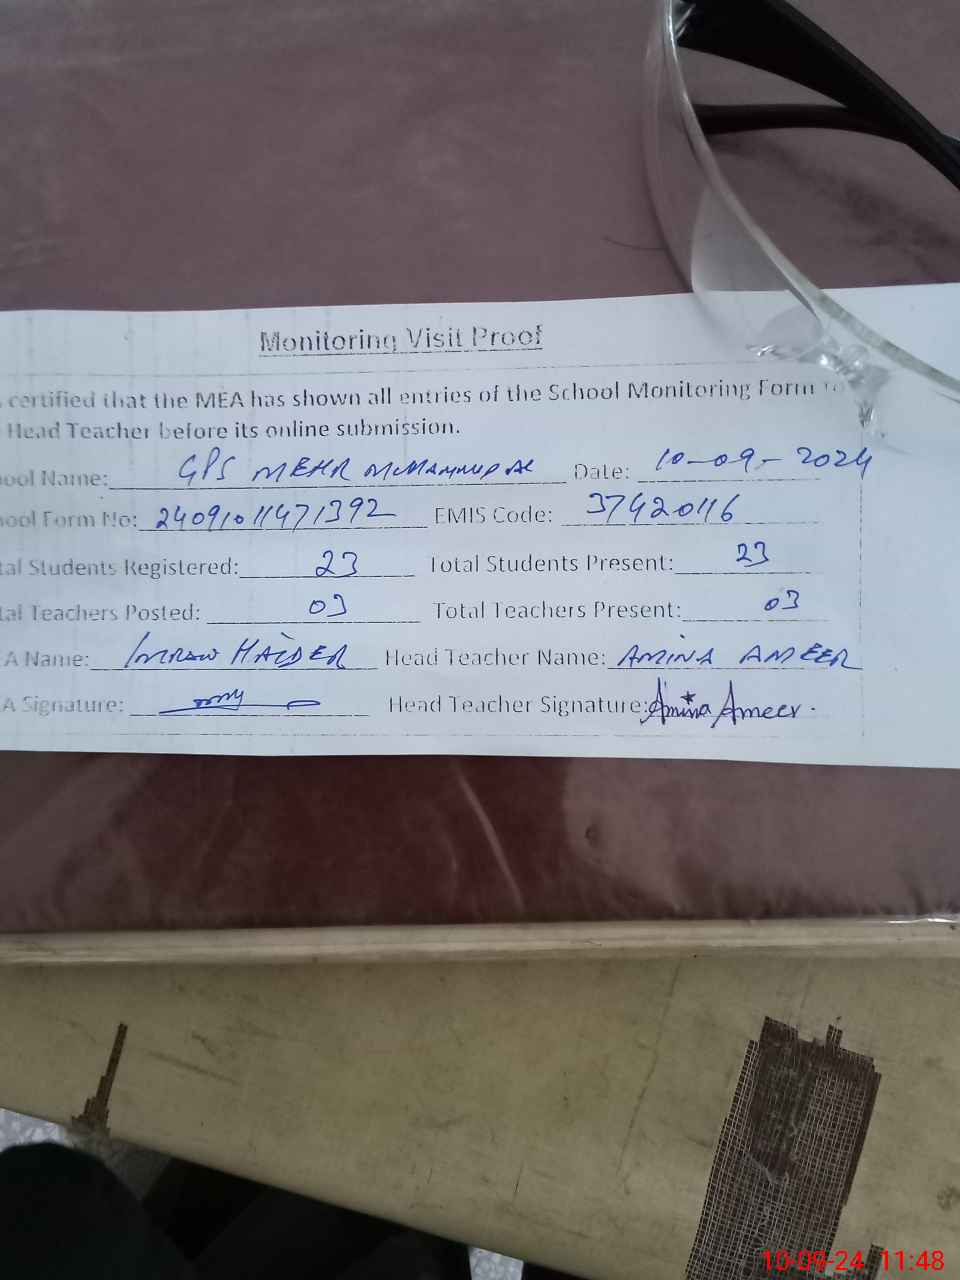 Monitoring Visit Proof
certified that the MEA has shown all entries of the School Monitoring Form to
Head Teacher before its online submission.
ool Name: GPS MEHR Date: 10-09-2024
ool Form No: 24091011471392 EMIS Code: 37420116
tal Students Registered: 23 Total Students Present: 23
tal Teachers Posted: 03 Total Teachers Present: 03
A Name: IMRAN HAIDER Head Teacher Name: AMINA AMEER
A Signature: Head Teacher Signature: Amina Ameer.
10-09-24 11:48